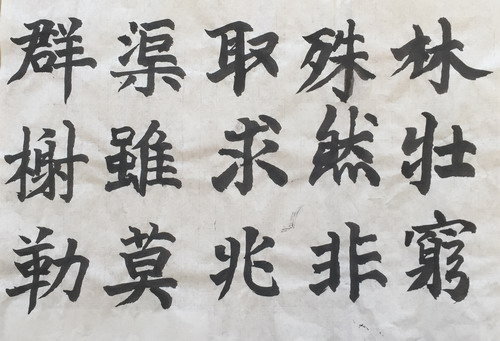 林壯窮
殊然非
取求兆
渠雖莫
群榭勒